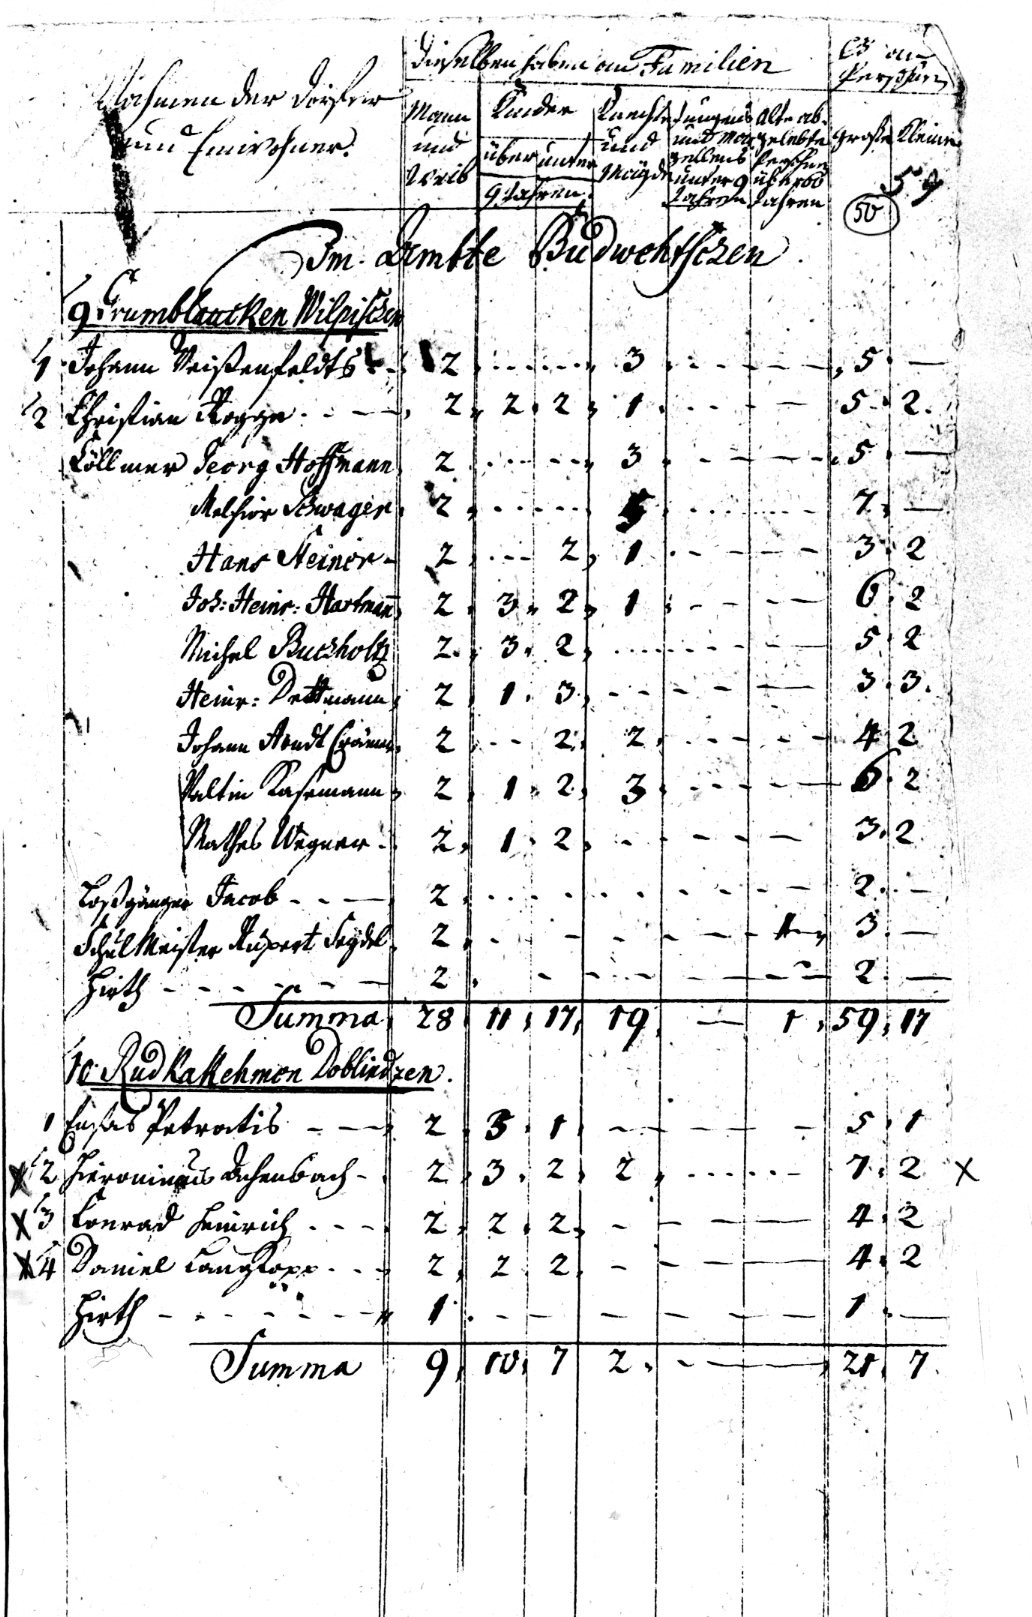 Nahmen der Dörfer
und Einwohner.
Dieselben haben an Familien
Es an
Persohnen
Mann
und
Weib
Kinder
über unter
9 Jahren.
Knechte
und
Mägde
Jungens
und Mar
gellens
unter 9
Jahren
Alte ab-
gelebte
Persohn
über 60
Jahren
Große Kleine
59
50
Im Ambte Budwehtschen
9 Grumbkauken Wilpischen
1 Johann Weißenfeldts 2 3 5 —
2 Christian Rogge 2 2 2 1 5 2
Cöllmer Georg Hoffmann 2 3 5 —
Melchior Schwager 2 5 7 —
Hans Steiner 2 2 1 3 2
Joh: Heinr: Hartmann 2 3 2 1 6 2
Michel Buchholtz 2 3 2 5 2
Heinr: Dettmann 2 1 3 3 3
Johann Arndt Cramer 2 2 2 4 2
Valtin Kasemann 2 1 2 3 6 2
Mathes Wegner 2 1 2 3 2
Loßgänger Jacob 2 2 —
Schul Meister Rupert Seydel 2 1 3 —
Hirth 2 2 —
Summa 28 11 17 19 — 1 59 17
10 Rudkakehmen Dobliedzen
1 Ensas Petratis 2 3 1 5 1
X 2 Hieronimus Achenbach 2 3 2 2 7 2 X
X 3 Conrad Heinrich 2 2 2 4 2
X 4 Daniel Langkopp 2 2 2 4 2
Hirth 1 1 —
Summa 9 10 7 2 — 21 7